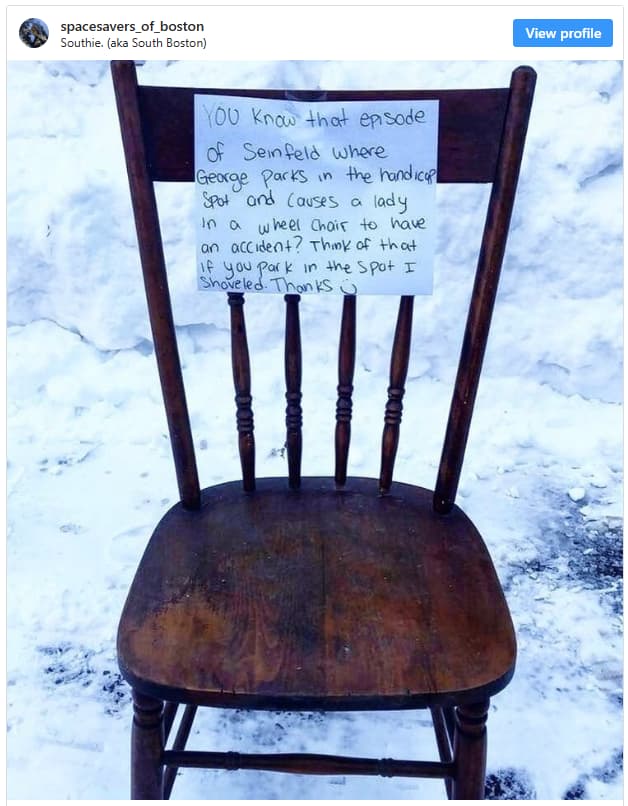 spacesavers_of_boston
Southie. (aka South Boston)
View profile
YOU know that episode
of Seinfeld where
George parks in the handicap
spot and causes a lady
in a wheel chair to have
an accident? Think of that
if you park in the spot I
shoveled. Thanks